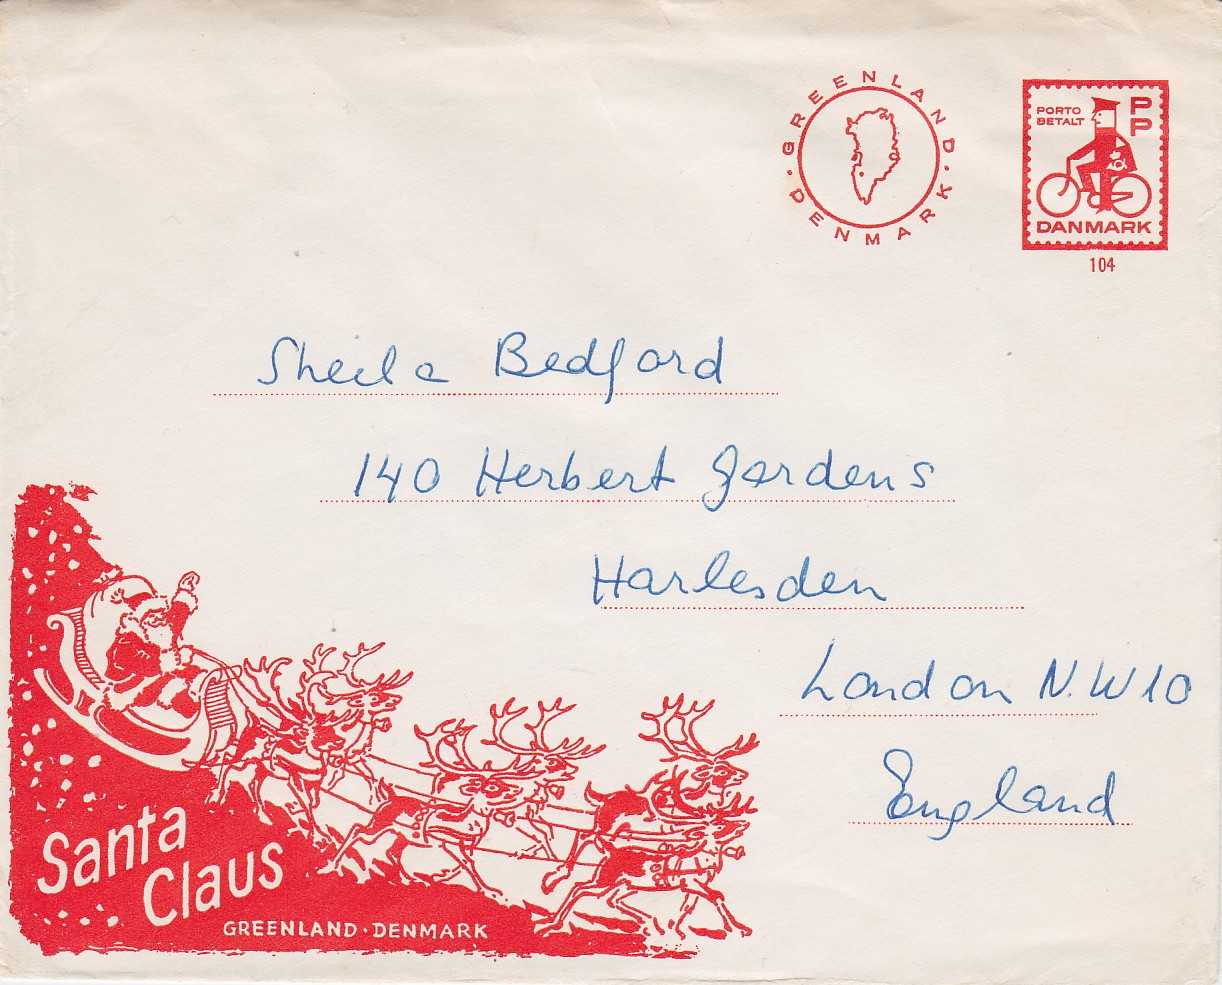 · GREENLAND · DENMARK
PORTO
BETALT
PP
DANMARK
104
Sheila Bedford
140 Herbert Gardens
Harlesden
London N.W10
England
Santa
Claus
GREENLAND · DENMARK